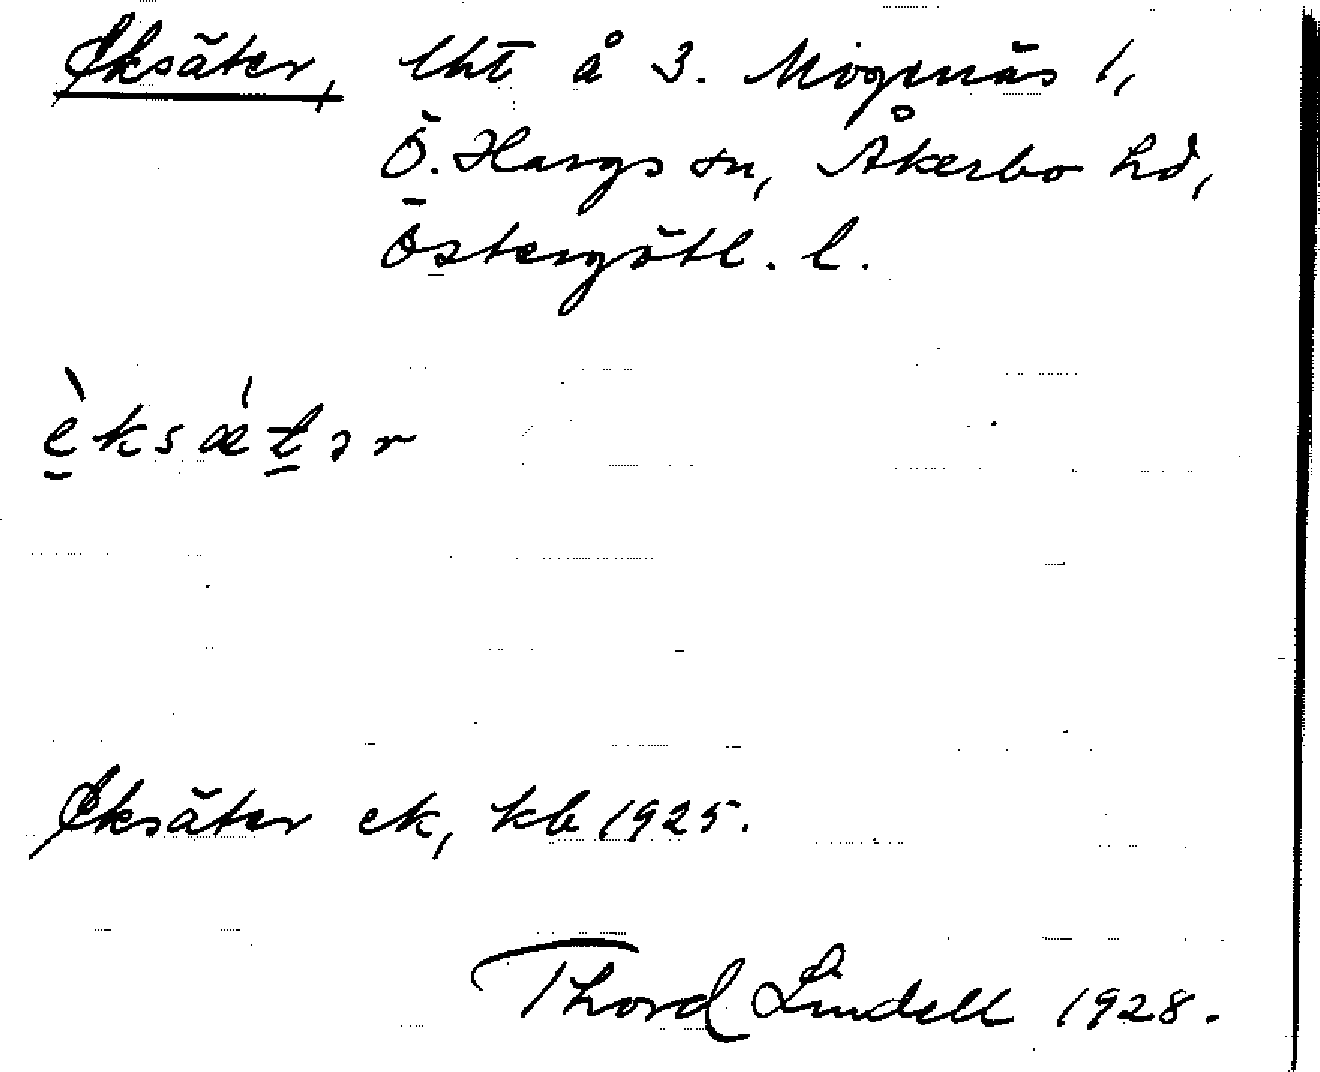 Eksäter, lht å 3. Mogenäs 1,
Ö. Hargs sn, Åkerbo hd,
Östergötl. l.
èksætər
Eksäter ek, kb 1925.
Thord Lindell 1928.